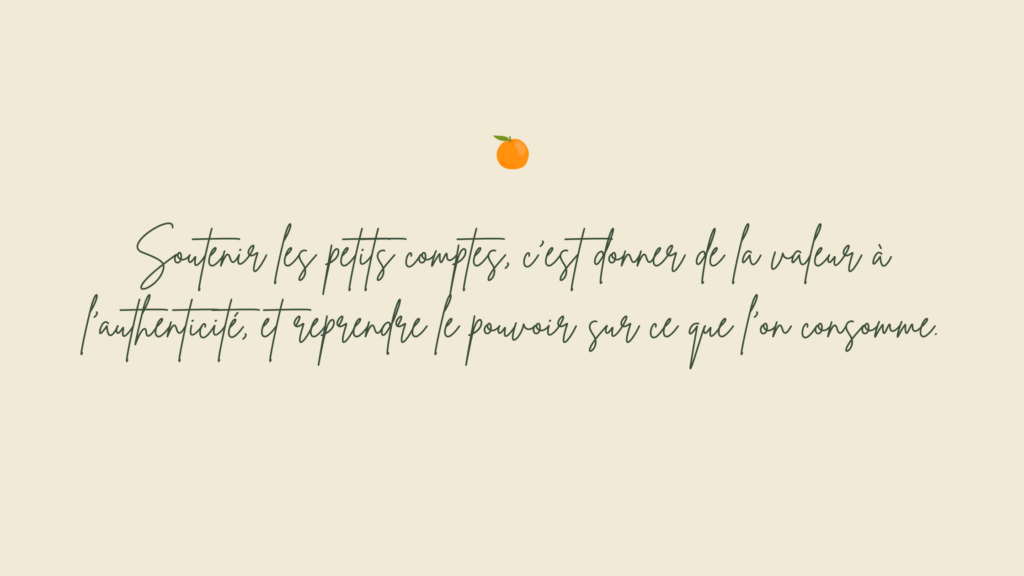 Soutenir les petits comptes, c'est donner de la valeur à
l'authenticité, et reprendre le pouvoir sur ce que l'on consomme.